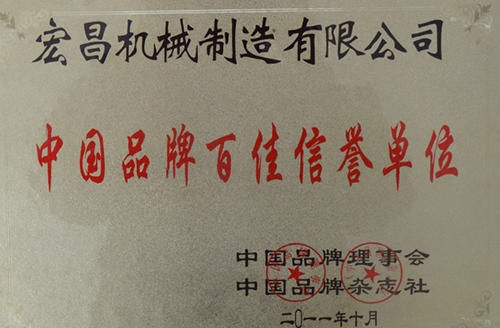 宏昌机械制造有限公司
中国品牌百佳信誉单位
中国品牌理事会
中国品牌杂志社
二〇一一年十月